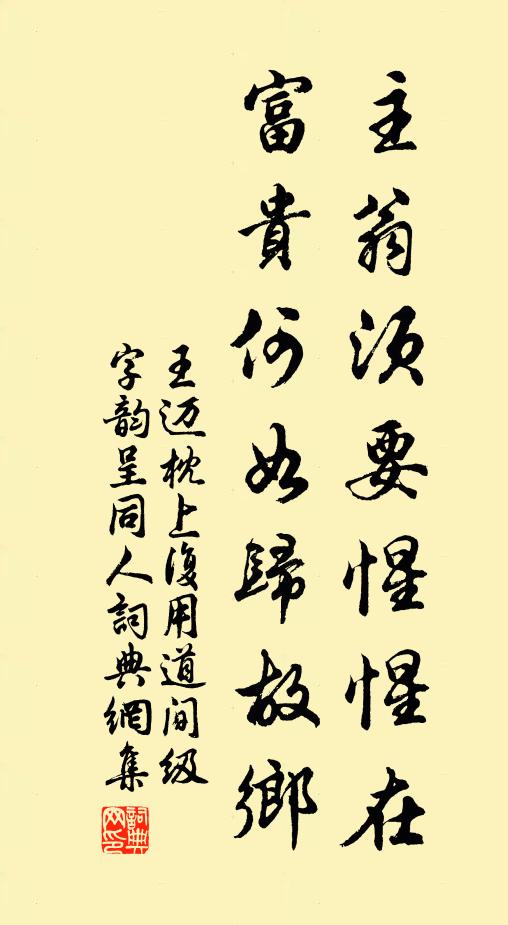 主翁须要惺惺在
富貴何如歸故鄉
王迈枕上復用道间级
字韵呈同人詞典網集
詞典
网印